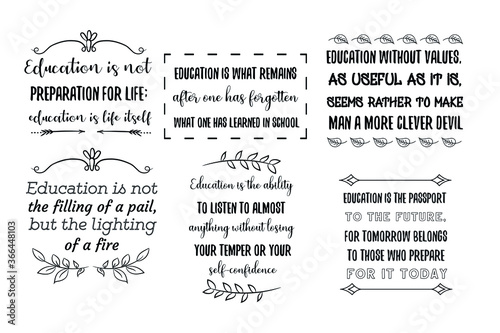 Education is not
PREPARATION FOR LIFE:
education is life itself
EDUCATION IS WHAT REMAINS
after one has forgotten
WHAT ONE HAS LEARNED IN SCHOOL
EDUCATION WITHOUT VALUES,
AS USEFUL AS IT IS,
SEEMS RATHER TO MAKE
MAN A MORE CLEVER DEVIL
Education is not
the filling of a pail,
but the lighting
of a fire
Education is the ability
TO LISTEN TO ALMOST
anything without losing
YOUR TEMPER OR YOUR
self-confidence
EDUCATION IS THE PASSPORT
TO THE FUTURE,
FOR TOMORROW BELONGS
TO THOSE WHO PREPARE
FOR IT TODAY
Adobe Stock | #366448103